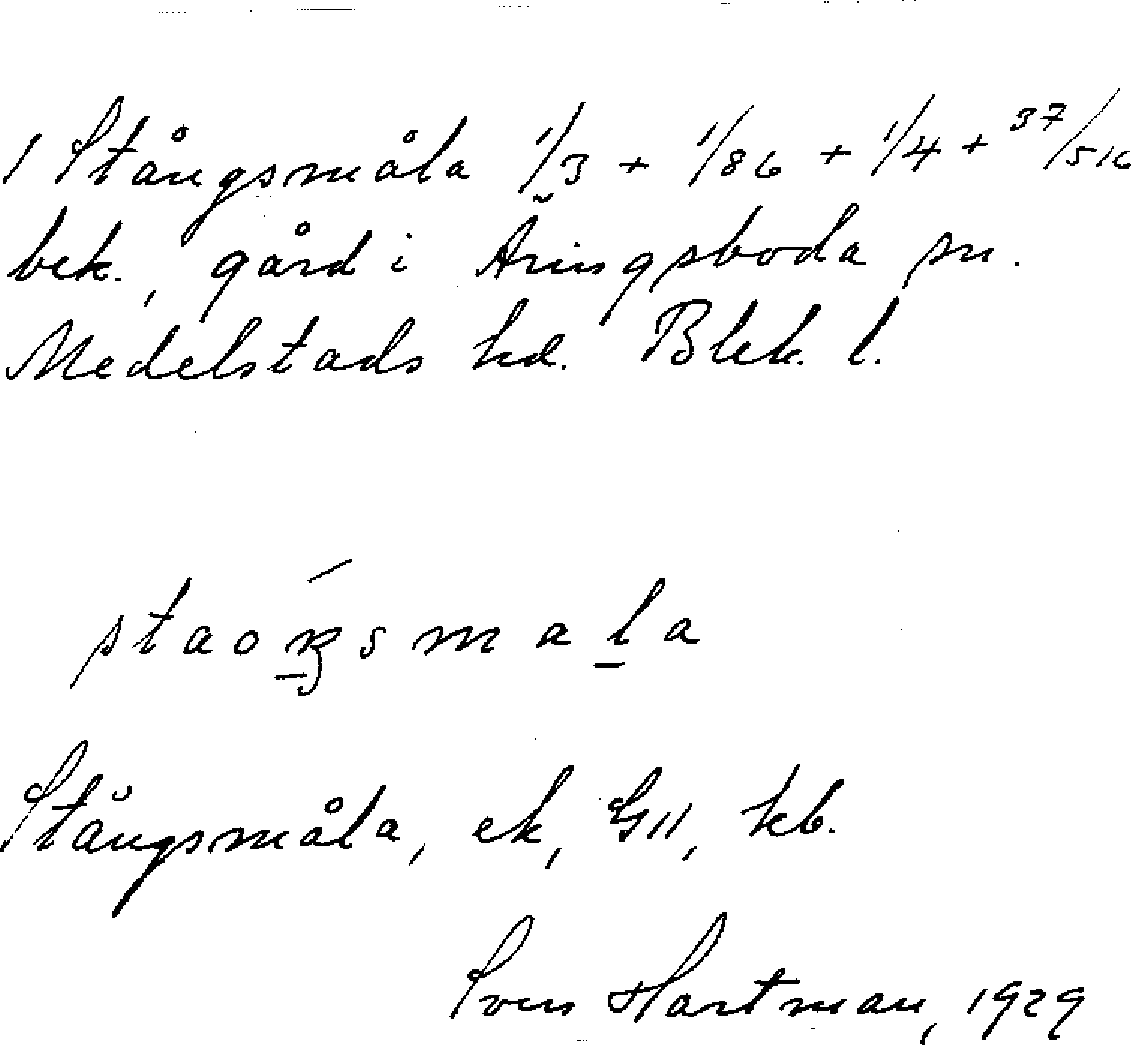 1 Stångsmåla 1/3 + 1/86 + 1/4 + 37/516
bek., gård i Åringsboda sn.
Medelstads hd. Blek. l.
staoŋsmala
Stångsmåla, ek, GII, kb.
Sven Hartman, 1929